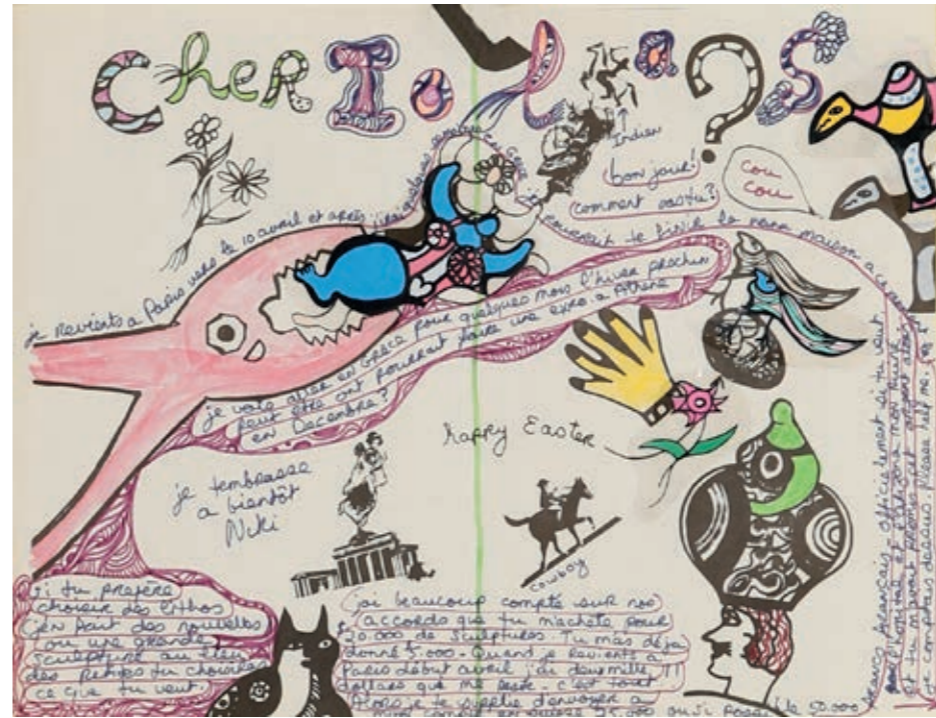 Cher Iolas ?
Indien
bonjour!
comment vas tu?
cou
cou
je revients a Paris vers le 10 avril et après j'irai quelques semaines
pourrait te finir la
maison a ce
je vais aller en Grèce pour quelques mois l'hiver prochin
peut être ont pourrait faire une expo a Athène
en Decembre?
happy Easter
je tembrasse
a bientôt
Niki
cowboy
Si tu prefère
choisir des lithos
j'en fait des nouvelles
ou une grande
sculpture au lieu
des petites tu choisiras
ce que tu veut.
jai beaucoup compte sur nos
accords que tu machete pour
30.000 de sculptures. Tu mas déja
donné 5.000. Quand je revients a
Paris début avril j'ai deux mille
dollars que me reste. c'est tout
Alors je te supplie d'envoyer a
mon compte en suisse 25,000 ou si possible 50.000
francs français officielement si tu veut
et tu m'avait promis cet argent alors
je comptais dessus. Please help me.